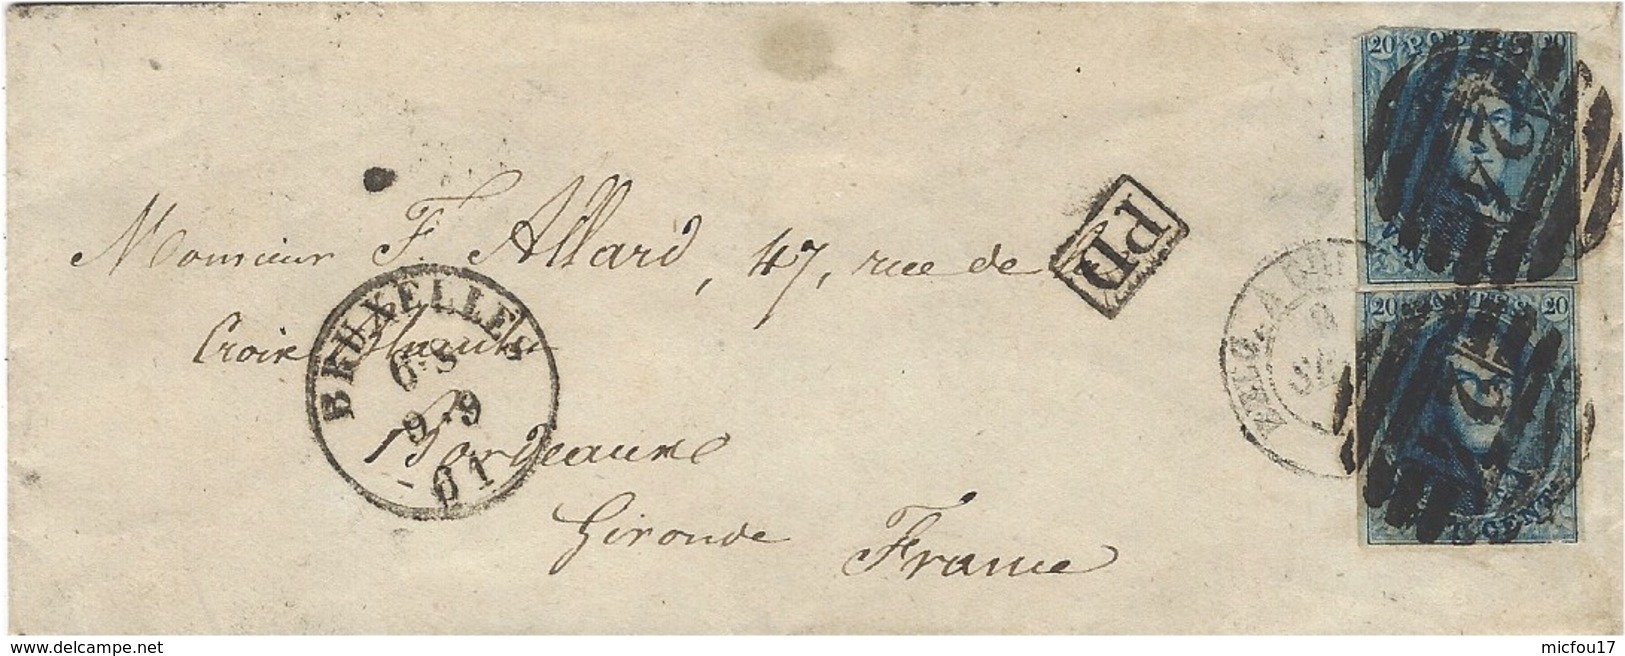 20 POSTES 20
24
Monsieur F. Allard, 47, rue de la
PD
Croix blanche
BRUXELLES
6·S
9·9
61
Bordeaux
Gironde France
20 POSTES 20
24
VINGT CENT.
www.delcampe.net
micfou17